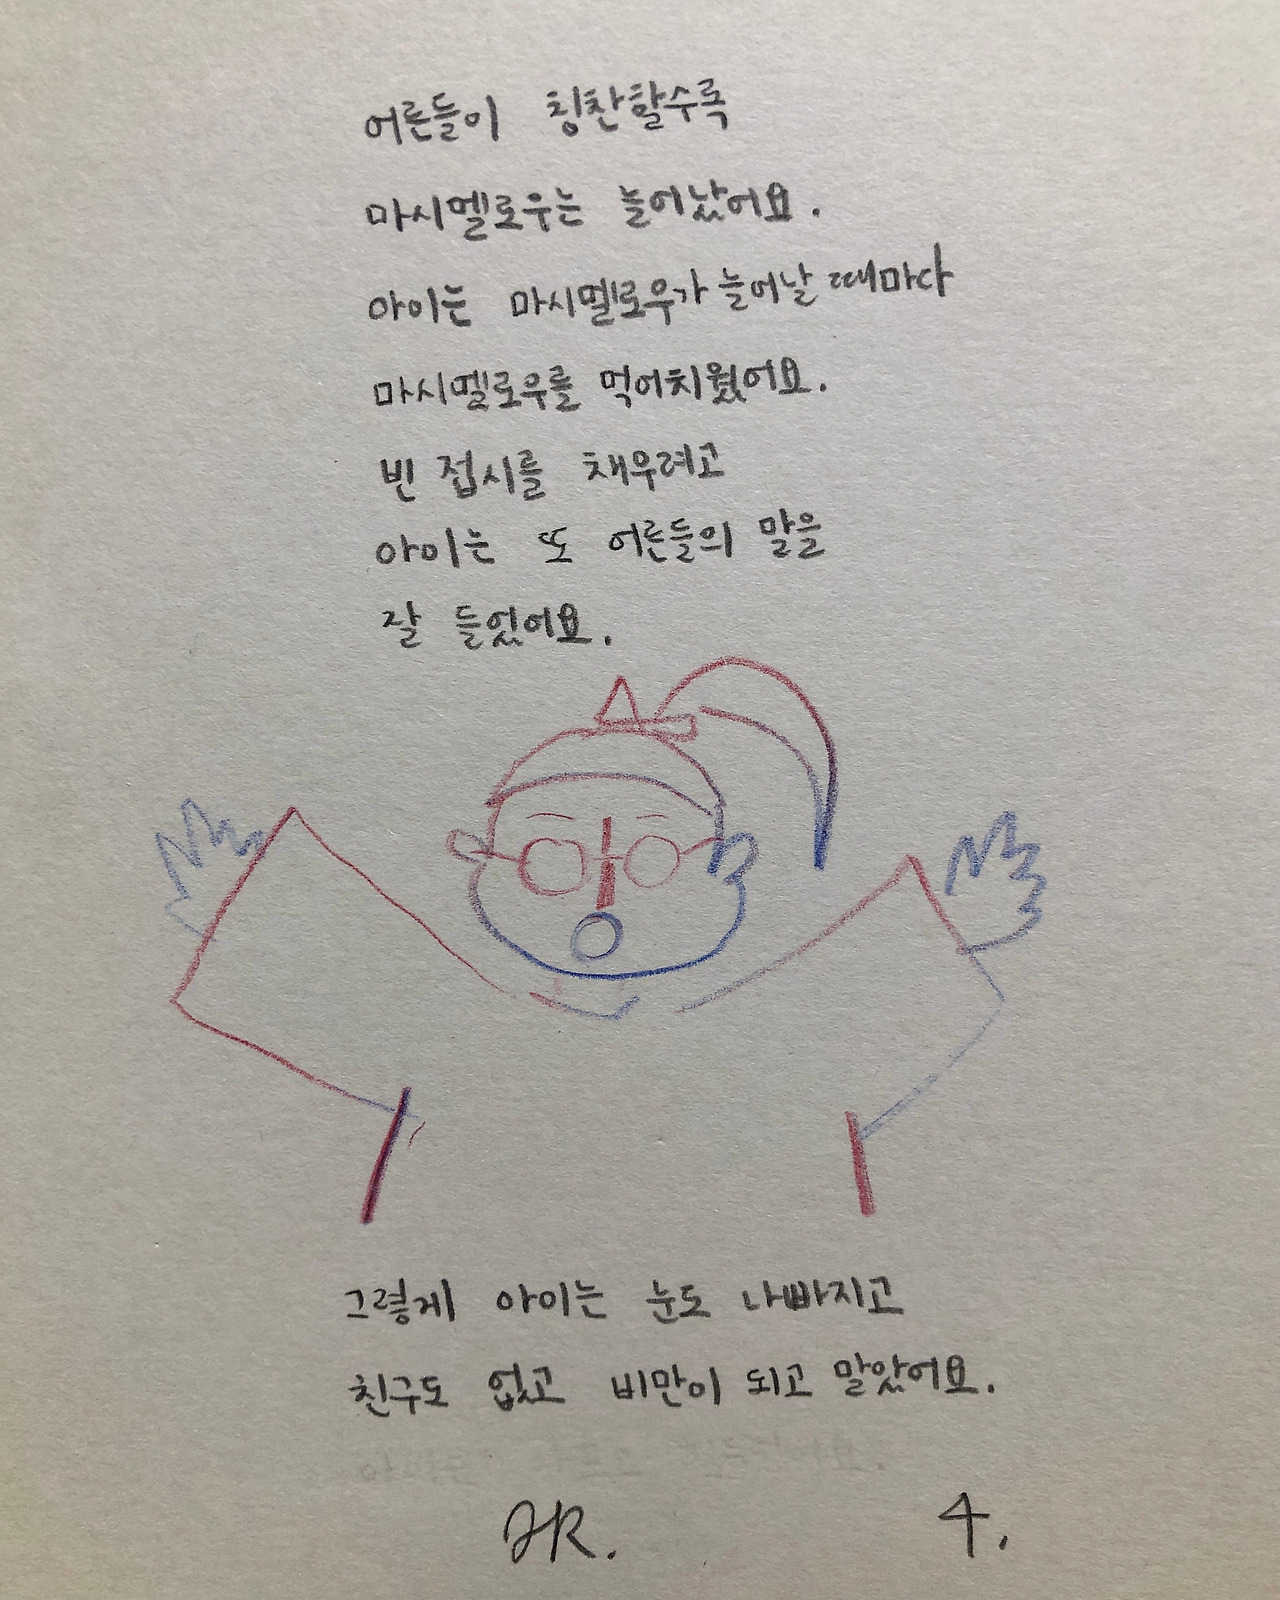 어른들이 칭찬할수록
마시멜로우는 늘어났어요.
아이는 마시멜로우가 늘어날 때마다
마시멜로우를 먹어치웠어요.
빈 접시를 채우려고
아이는 또 어른들의 말을
잘 들었어요.
그렇게 아이는 눈도 나빠지고
친구도 없고 비만이 되고 말았어요.
4.